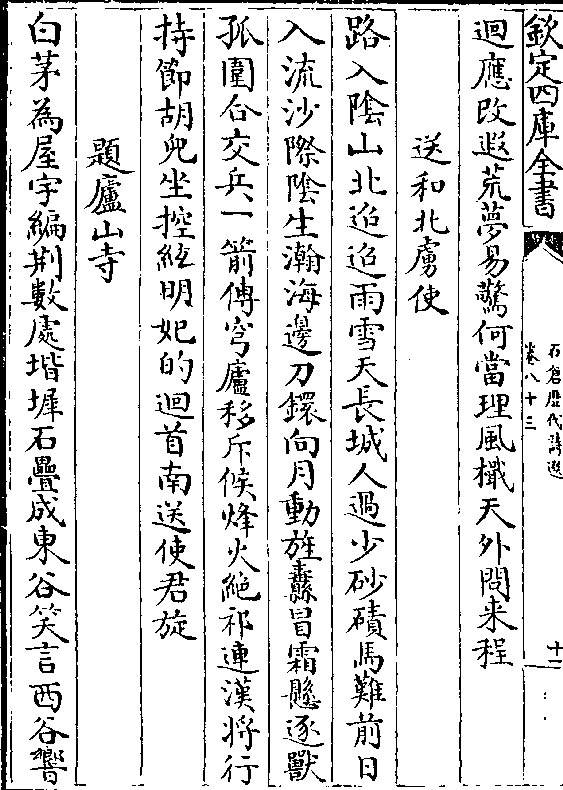 欽定四庫全書
石倉歷代詩選
卷八十三
十二
迴應改遐荒夢易驚何當理風檝天外問来程
送和北虜使
路入陰山北迢迢雨雪天長城人過少砂磧馬難前日
入流沙際陰生瀚海邊刀鐶向月動旌纛冒霜懸逐獸
孤圍合交兵一箭傳穹廬移斥候烽火絶祁連漢將行
持節胡兒坐控絃明妃的迴首南送使君旋
題廬山寺
白茅為屋宇編荆數處堦墀石疊成東谷笑言西谷響